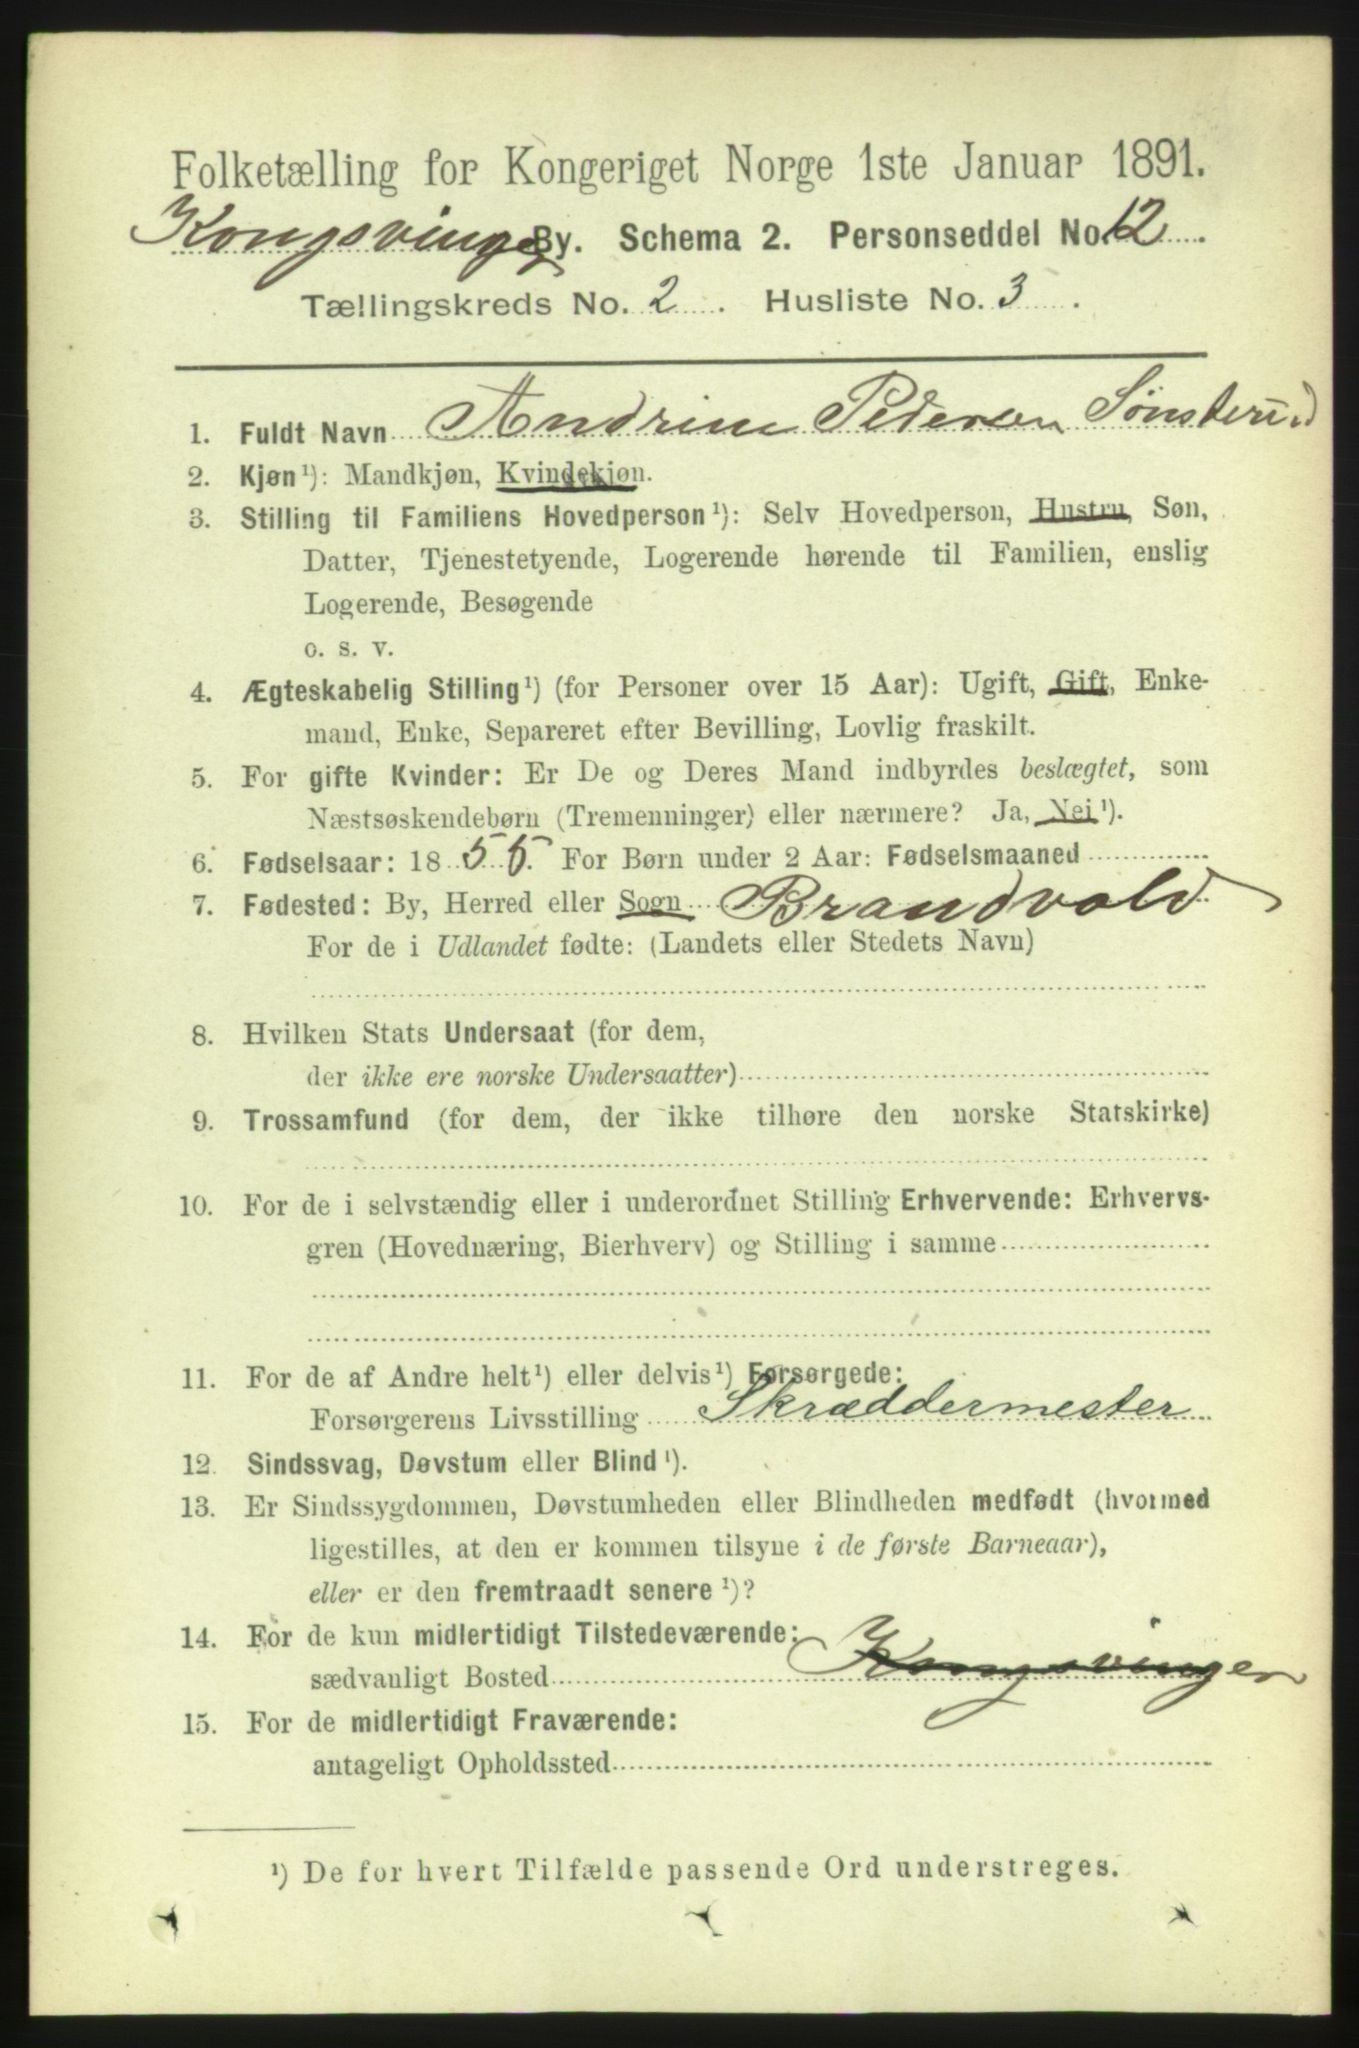 Folketælling for Kongeriget Norge 1ste Januar 1891.
Kongsvinger By. Schema 2. Personseddel No. 12.
Tællingskreds No. 2. Husliste No. 3.
1. Fuldt Navn Andrine Pedersen Sønsterud
2. Kjøn¹): Mandkjøn, Kvindekjøn.
3. Stilling til Familiens Hovedperson¹): Selv Hovedperson, Hustru, Søn,
Datter, Tjenestetyende, Logerende hørende til Familien, enslig
Logerende, Besøgende
o. s. v.
4. Ægteskabelig Stilling¹) (for Personer over 15 Aar): Ugift, Gift, Enke-
mand, Enke, Separeret efter Bevilling, Lovlig fraskilt.
5. For gifte Kvinder: Er De og Deres Mand indbyrdes beslægtet, som
Næstsøskendebørn (Tremenninger) eller nærmere? Ja, Nei¹).
6. Fødselsaar: 1855. For Børn under 2 Aar: Fødselsmaaned
7. Fødested: By, Herred eller Sogn Brandvold
For de i Udlandet fødte: (Landets eller Stedets Navn)
8. Hvilken Stats Undersaat (for dem,
der ikke ere norske Undersaatter)
9. Trossamfund (for dem, der ikke tilhøre den norske Statskirke)
10. For de i selvstændig eller i underordnet Stilling Erhvervende: Erhvervs-
gren (Hovednæring, Bierhverv) og Stilling i samme
11. For de af Andre helt¹) eller delvis¹) Forsørgede:
Forsørgerens Livsstilling Skræddermester
12. Sindssvag, Døvstum eller Blind¹).
13. Er Sindssygdommen, Døvstumheden eller Blindheden medfødt (hvormed
ligestilles, at den er kommen tilsyne i de første Barneaar),
eller er den fremtraadt senere¹)?
14. For de kun midlertidigt Tilstedeværende:
sædvanligt Bosted Kongsvinger
15. For de midlertidigt Fraværende:
antageligt Opholdssted
¹) De for hvert Tilfælde passende Ord understreges.